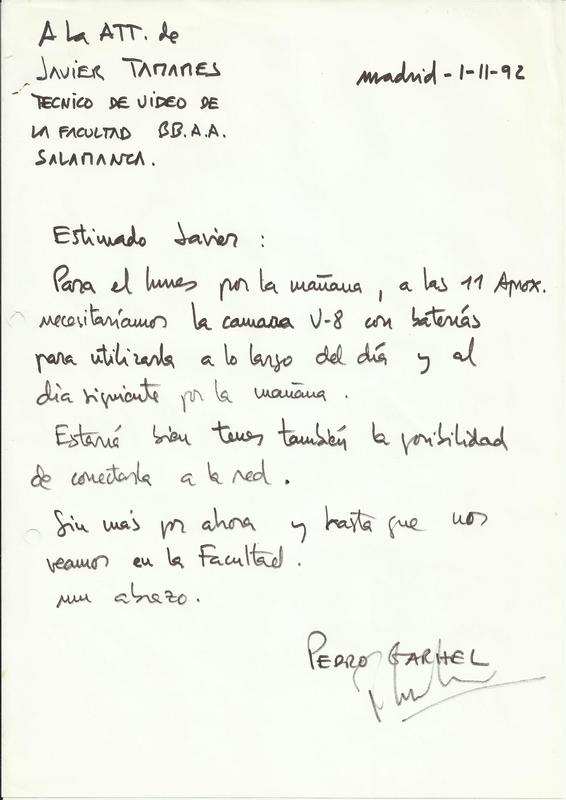 A la ATT. de
JAVIER TAMAMES
madrid - 1-11-92
TECNICO DE VIDEO DE
LA FACULTAD BB.A.A.
SALAMANCA.
Estimado Javier :
Para el lunes por la mañana, a las 11 Aprox.
necesitaríamos la camara V-8 con baterías
para utilizarla a lo largo del día y al
dia siguiente por la mañana.
Estaría bien tener también la posibilidad
de conectarla a la red.
Sin más por ahora y hasta que nos
veamos en la Facultad.
un abrazo.
PEDRO GARHEL